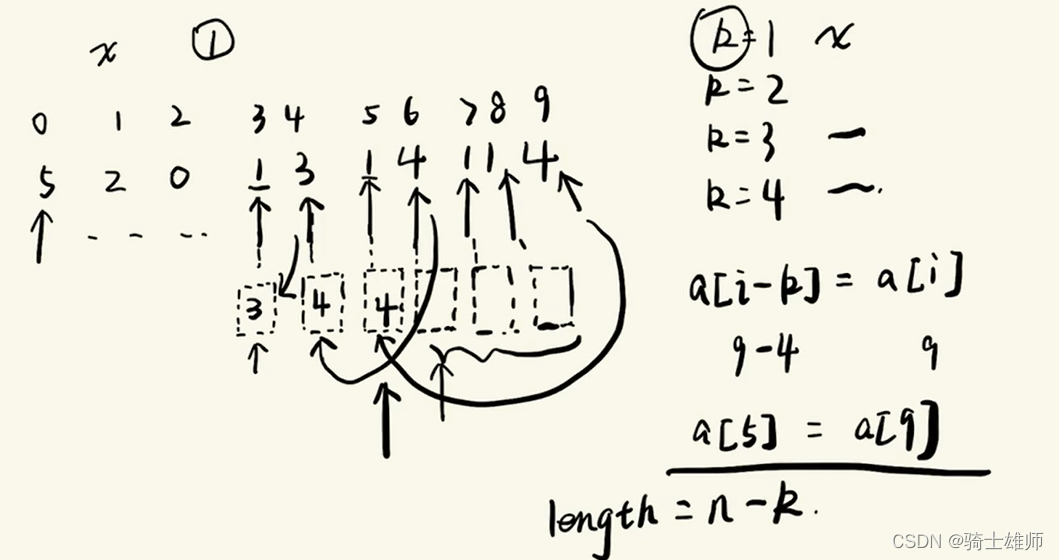 x ①
0 1 2 3 4 5 6 7 8 9
5 2 0 1 3 1 4 1 1 4
3 4 4
k=1 x
k=2
k=3 —
k=4 ~.
a[i-k] = a[i]
9-4 9
a[5] = a[9]
length = n-k.
CSDN @骑士雄师